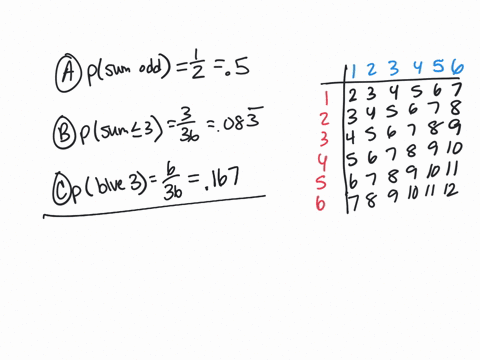 Ⓐ p(sum odd) = 1/2 = .5
Ⓑ p(sum ≤ 3) = 3/36 = .083̅
Ⓒ p(blue 3) = 6/36 = .167
1 2 3 4 5 6
1 2 3 4 5 6 7
2 3 4 5 6 7 8
3 4 5 6 7 8 9
4 5 6 7 8 9 10
5 6 7 8 9 10 11
6 7 8 9 10 11 12